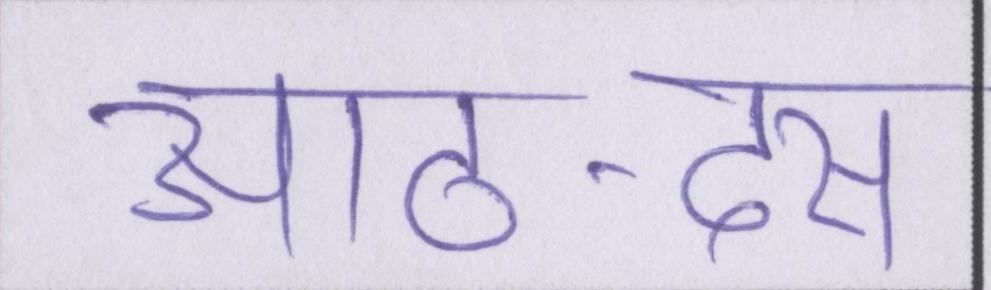 आठ-दस